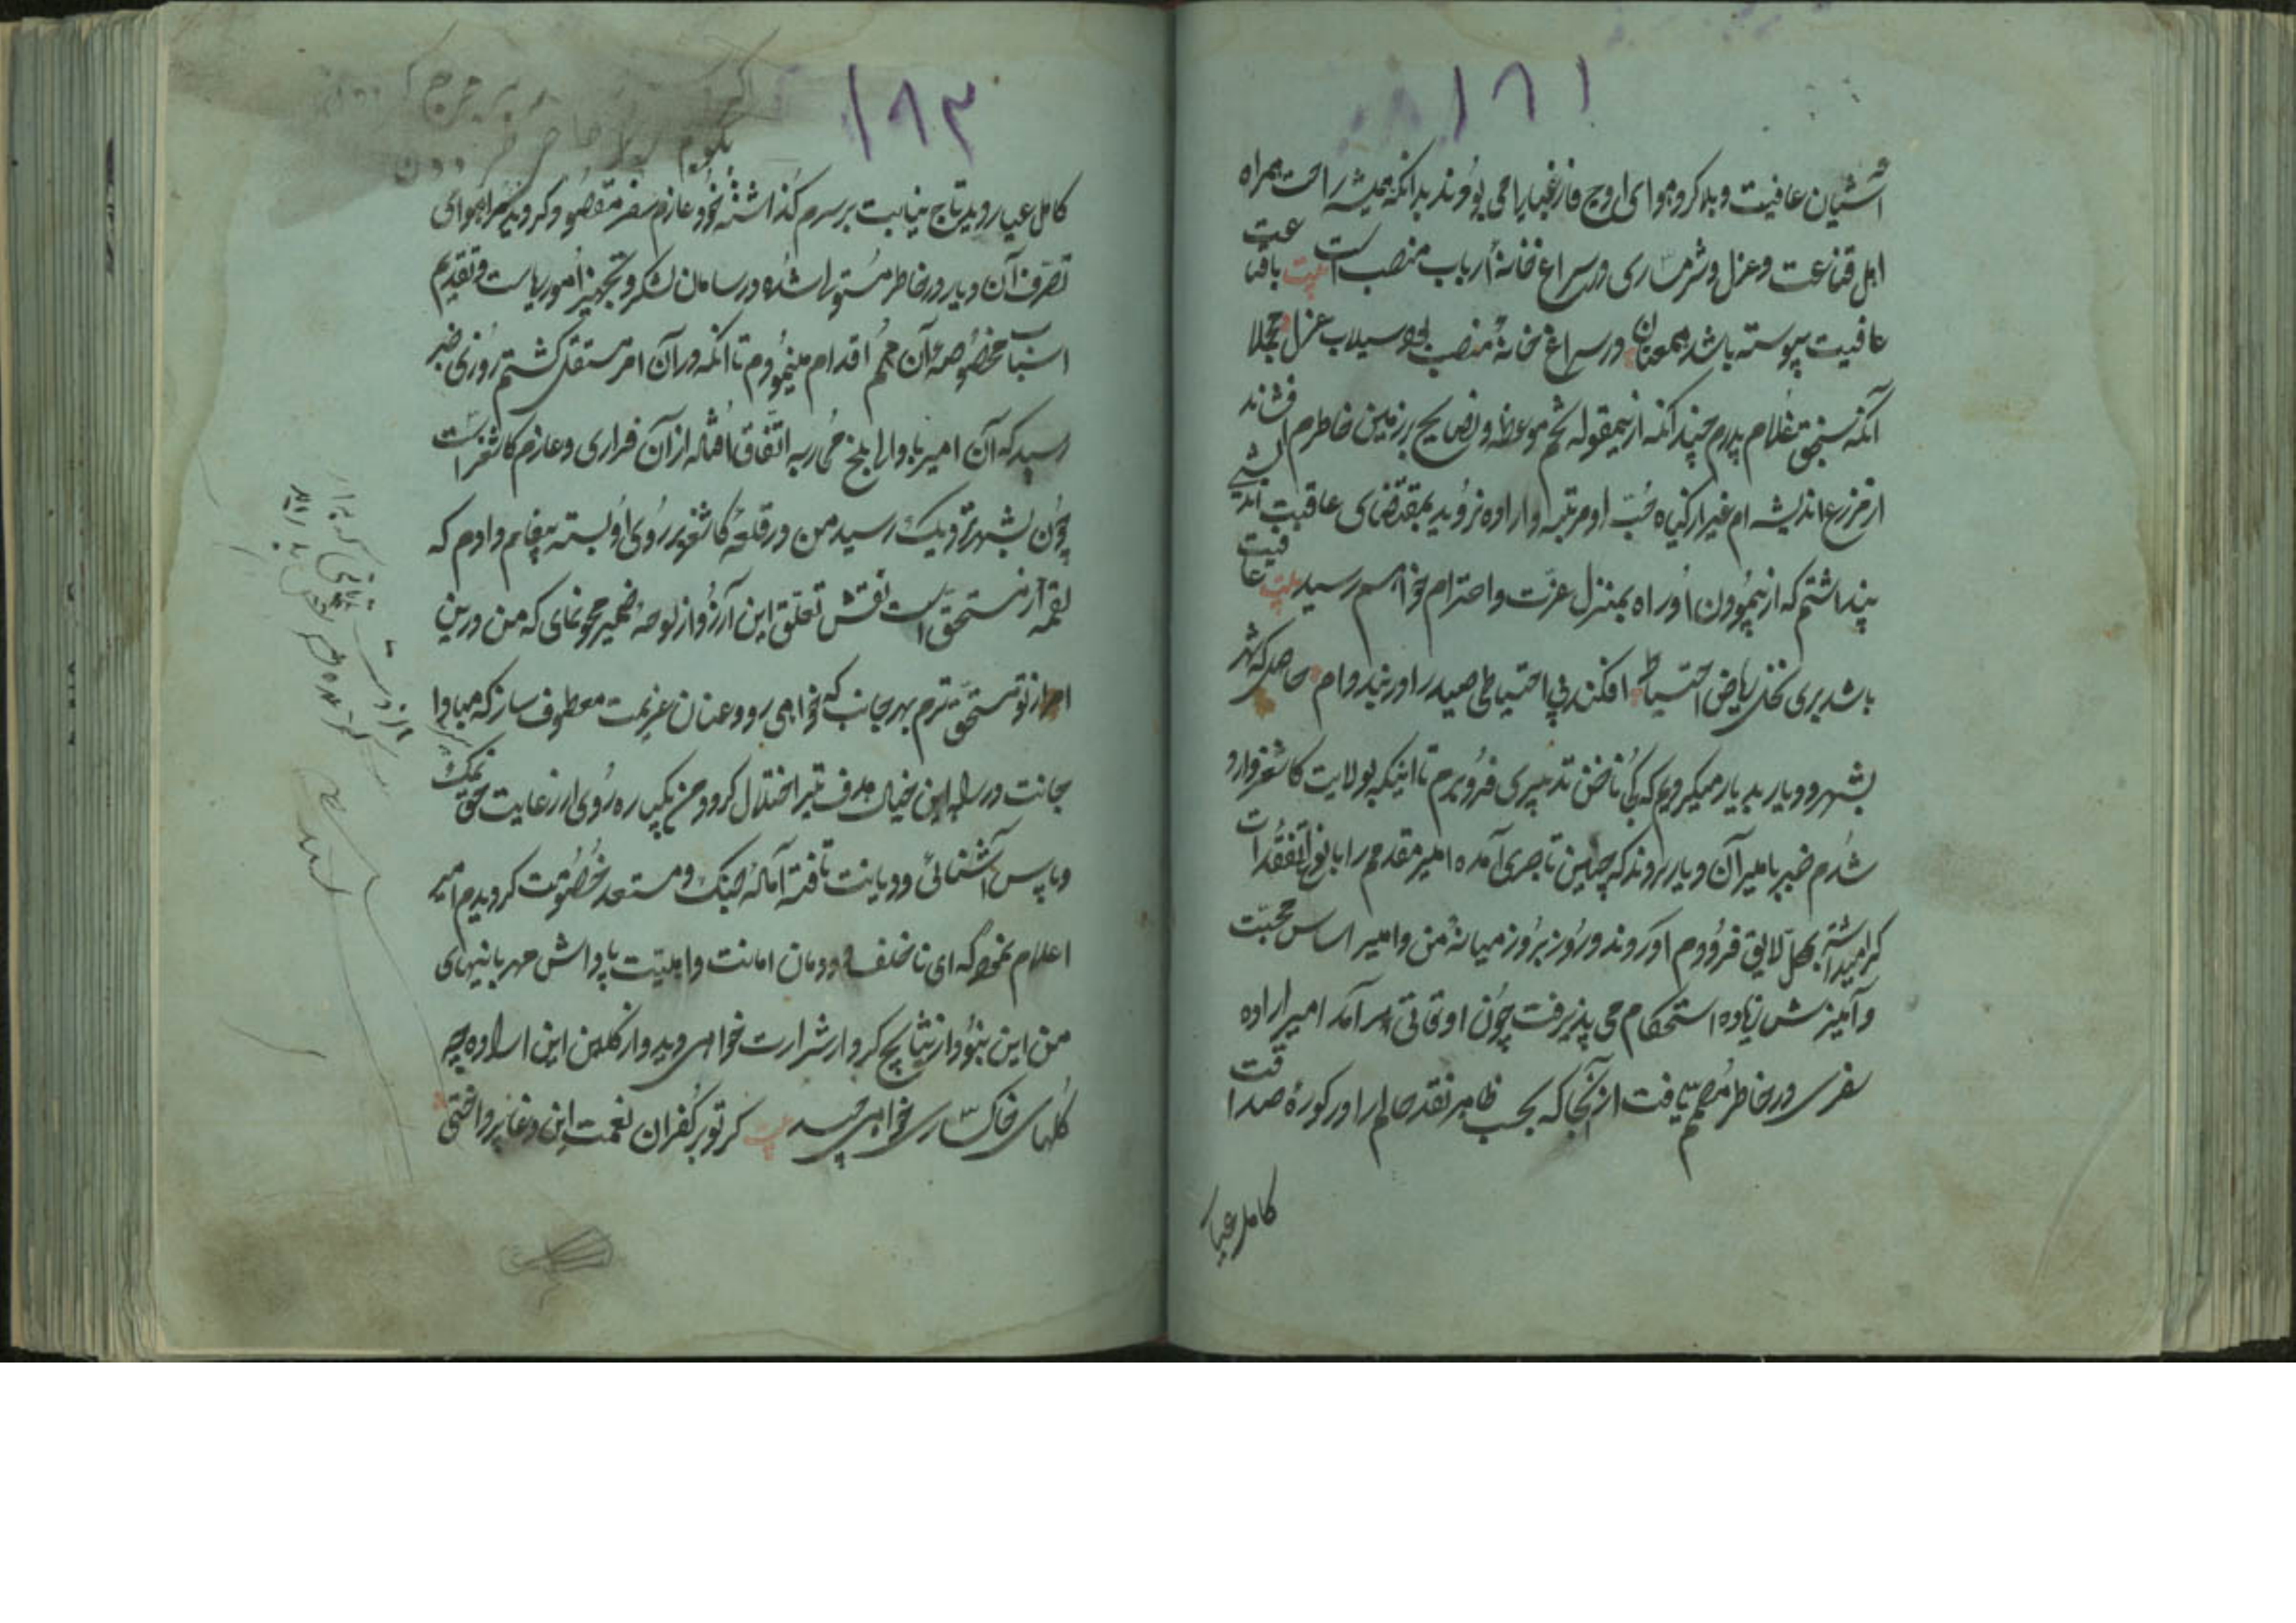 ۱۸۱
آشیان عافیت و بلا کرد هوای اوج فارغبالی می بودند بدانکه همیشه راحت همراه
اهل قناعت و عزل و شرمساری در سراغ خانهٔ ارباب منصب است بیت با قناعت
عافیت پیوسته باشد همعنان در سراغ خانهٔ منصب بود سیلاب عزل مجملا
آنکه سنجق غلام پدرم چندانکه ازینمقوله تخم موعظه و نصایح بر زمین خاطرم فشاند
از مزرع اندیشه ام غیر از گیاه حب او مرتبه و اراده نروئید بمقتضای عاقبت اندیشی
پنداشتم که از پیمودن او راه بمنزل عزت و احترام خواهم رسید بیت عافیت
باشد بری نخل ریاض احتیاط افکند بی احتیاطی صید را در بند دام حاصل که شهر
بشهر و دیار بدیار میگردیدم که بی ناخن تدبیری فرو برم تا اینکه بولایت کاشغر وارد
شدم خبر بامیر آن دیار بردند که چنین تاجری آمده امیر مقدمم را بانواع تفقدات
گرامیداشته بمحل لایق فرودم آوردند و روز بروز میانهٔ من و امیر اساس محبت
و آمیزش زیاده استحکام می پذیرفت چون اوقاتی بسر آمد امیر اراده
سفری در خاطر مصمم یافت از آنجا که بحسب ظاهر نقد حالم را در کورهٔ صداقت
کامل عیار
۱۸۳
بگویم
کامل عیار دید تاج نیابت بر سرم گذاشته خود عازم سفر مقصود گردید مرا هوای
تصرف آن دیار در خاطر مستولی شده در سامان لشکر و تجهیز امور ریاست و تقدیم
اسباب مخصوصه آن مهم اقدام مینمودم تا آنکه در آن امر مستقل گشتم روزی خبر
رسید که آن امیر با والی بلخ حربه اتفاق افتاده از آن فراری و عازم کاشغر است
چون بشهر نزدیک رسید من در قلعه کاشغر بر روی او بسته پیغام دادم که
لقمه از مستحق است نقش تعلق این آرزو از لوحهٔ ضمیر محو نمای که من درین
امر از تو مستحق ترم بهر جانب که خواهی رو و عنان عزیمت معطوف ساز که مبادا
جانت در راه این خیال هدف تیر اختلال گردد من یکباره روی از رعایت حق نمک
و پاس آشنائی و دیانت تافته آمادهٔ جنگ و مستعد خصومت گردیدم امیر
اعلام نمود که ای ناخلف دودمان امانت و اهلیت پاداش مهربانیهای
من این نبود از نتایج کردار شرارت خواهی دید و از گلبن این اراده چه
گلهای خاکساری خواهی چید بیت گر تو بر کفران نعمت این دغا پرداختی